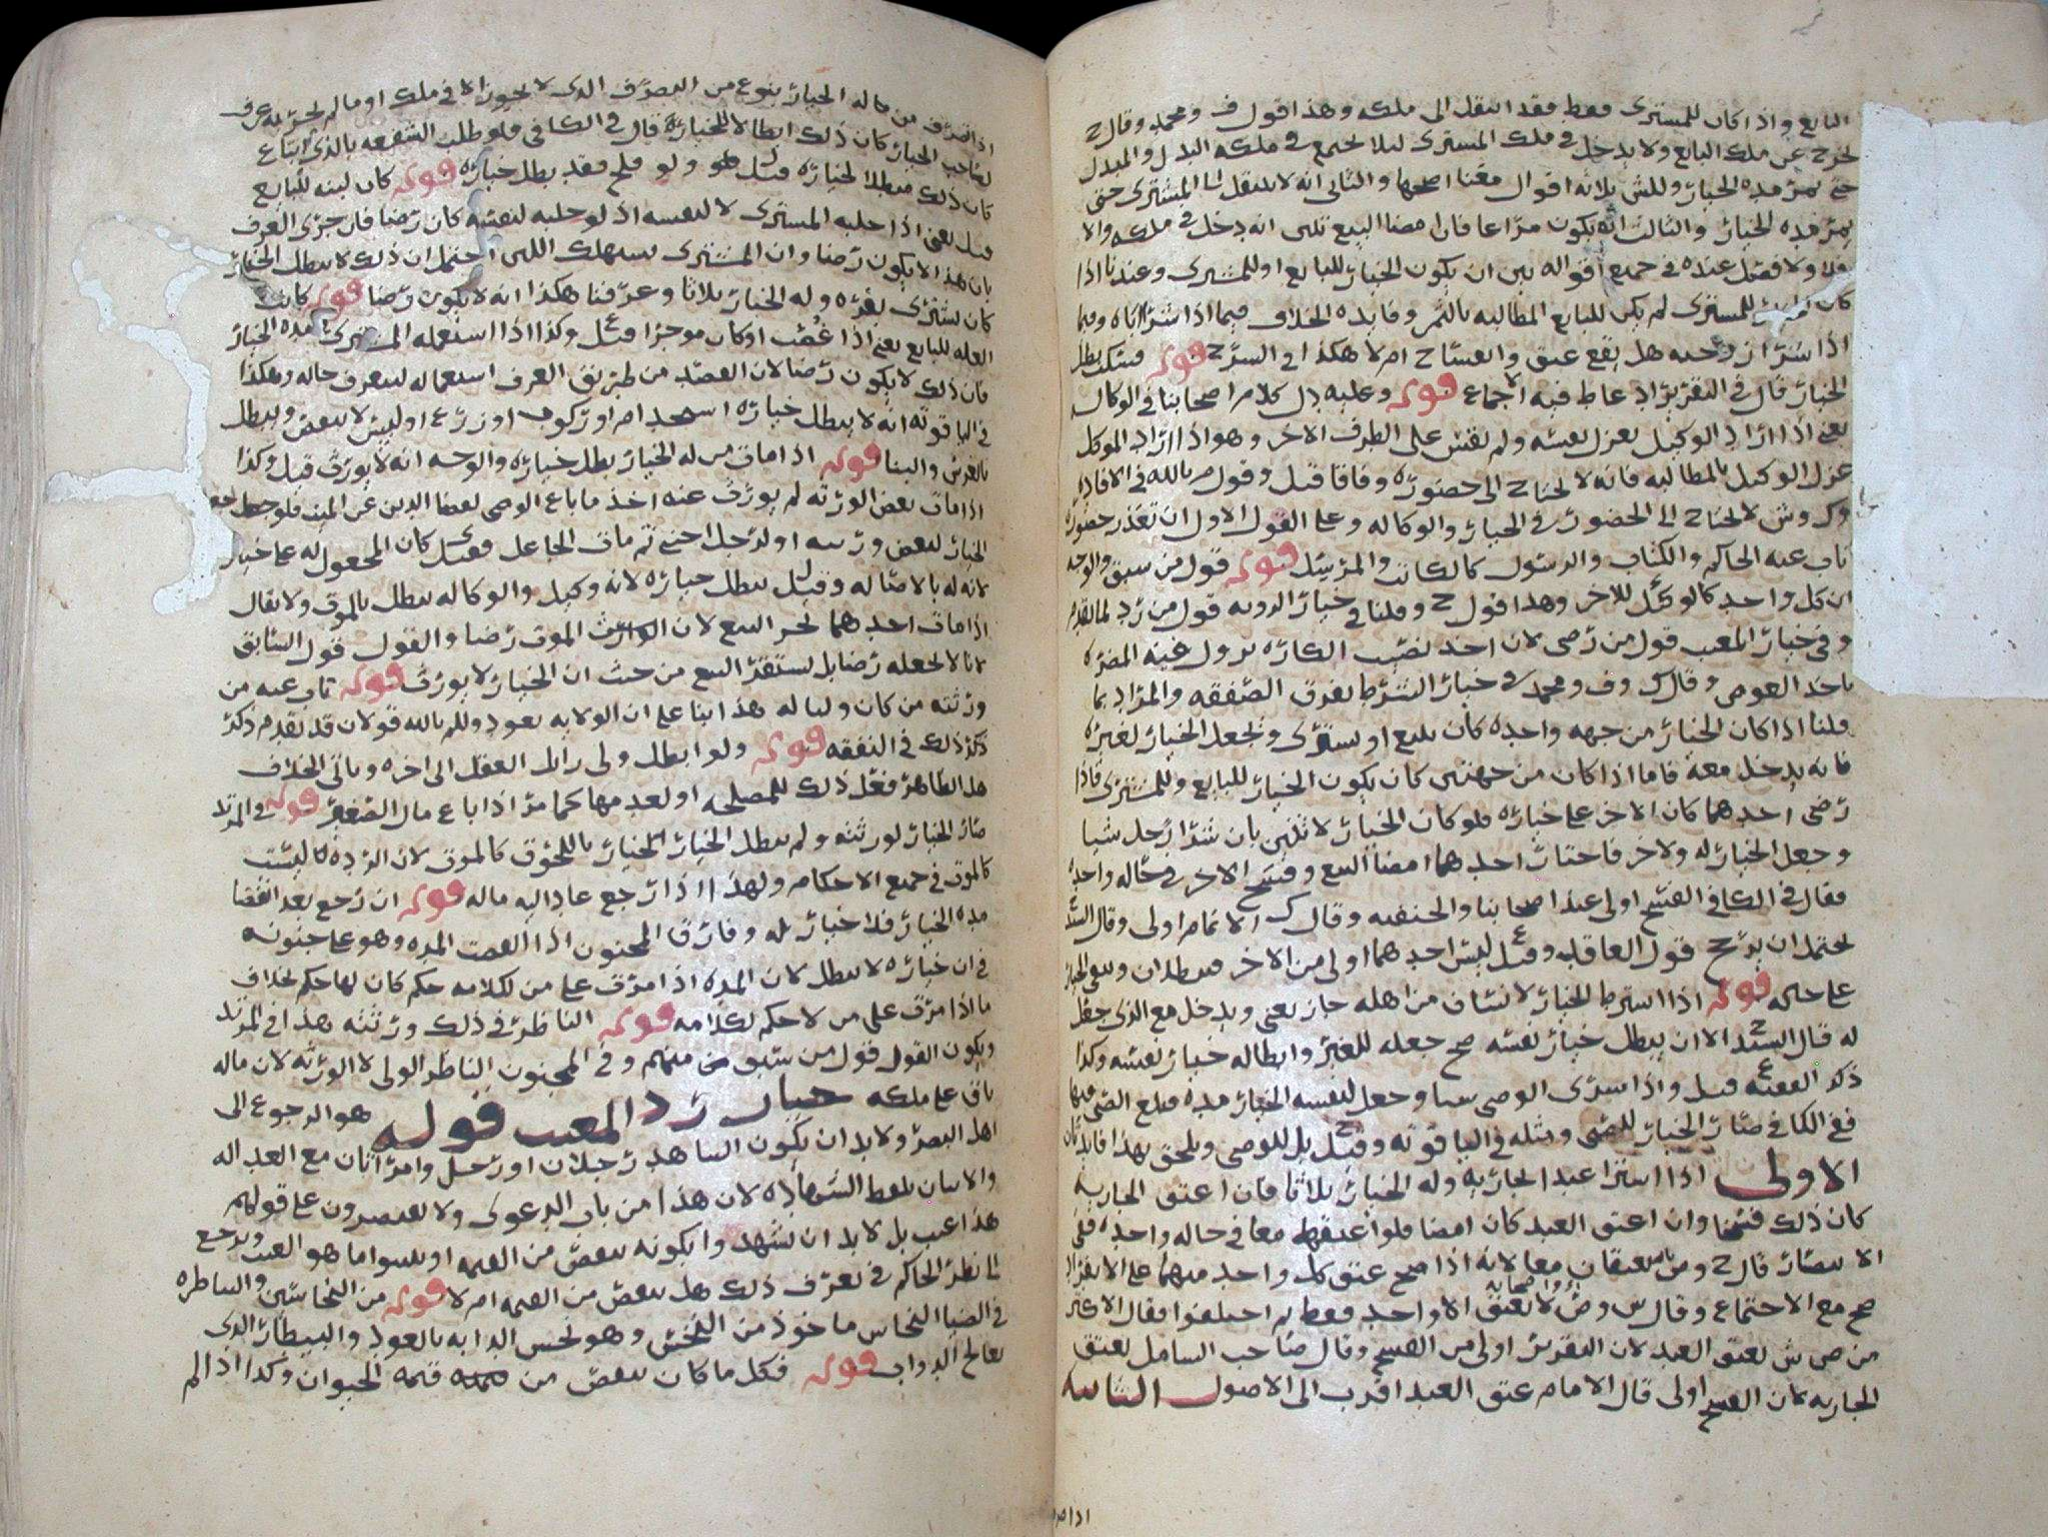 البايع واذا كان للمشتري فقط فقد انتقل الى ملكه وهذا قول ف ومحمد وقال ح
يخرج عن ملك البايع ولا يدخل في ملك المشتري ليلا يجتمع في ملكه البدل والمبدل
حتى تمر مده الخيار وللش ثلاثه اقوال معنا اصحها والثاني انه لا ينتقل الى المشتري حتى
تمر مده الخيار والثالث انه يكون مراعا فان امضا البيع تبين انه دخل في ملكه والا
فلا ولا فصل عنده في جميع اقواله بين ان يكون الخيار للبايع او للمشتري وعندنا اذا
كان للمشتري لم يكن للبايع المطالبه بالثمن وفايده الخلاف فيما اذا شرا اباه وفيما
اذا شرا زوجته هل يقع عتق وانفساخ ام لا هكذا في الشرح قوله
الخيار قال في التقرير اجماع قوله وعليه دل كلام اصحابنا في الوكاله
يعني اذا اراد الوكيل يعزل نفسه ولم نقس على الطرف الاخر وهو اذا اراد الموكل
عزل الوكيل بالمطالبه فانه لا يحتاج الى حضوره وفاقا قيل وقول م بالله في الافاده
وك وش لا يحتاج الى الحضور في الخيار والوكاله وعلى القول الاول ان تعذر حضوره
ناب عنه الحاكم والكتاب والرسول كالكاتب والمرسل قوله قول من سبق والوجه
ان كل واحد كالوكيل للاخر وهذا قول ح وقلنا في خيار الرويه قول من رد لما تقدم
وفي خيار المعيب قول من رضي لان اخذ نصيب الكاره يزول عنه المضره
باخذ العوض وقال ك وف ومحمد في خيار الشرط بفرق الصفقه والمراد بما
قلنا اذا كان الخيار من جهه واحده كان يبيع او يشتري ويجعل الخيار لغيره
فانه يدخل معه فاما اذا كان من جهتين كان يكون الخيار للبايع وللمشتري فاذا
رضي احدهما كان الاخر على خياره فلو كان الخيار لاثنين بان شرا رجل شيا
وجعل الخيار له ولاخر فاختار احدهما امضا البيع وفسخ الاخر في حاله واحده
فقال في الكافي الفسخ اولى عند اصحابنا والحنفيه وقال ك الاتمام اولى وقال السيد
يحتمل ان يرجح قول العاقد وقيل ع ليس احدهما اولى من الاخر فيبطلان ويبقى الخيار
على حكمه قوله اذا اشترط الخيار لانسان من اهله جاز يعني ويدخل مع الذي جعل
له قال السيد ح الا ان يبطل خيار نفسه صح جعله للغير وابطاله خيار نفسه وكذا
ذكر الفقيه ع قيل واذا اشترى الوصي شيا وجعل لنفسه الخيار مده فبلغ الصبي فيها
ففي الكافي صار الخيار للصبي ومثله في الياقوته وقيل ح بل للوصي ويلحق بهذا فايدتان
الاولى اذا اشترا عبدا بجاريه وله الخيار ثلاثا فان اعتق الجاريه
كان ذلك فسخا وان اعتق العبد كان امضا فلو اعتقهما معا في حاله واحده فلمن
الا نصار قال ح ومن تابعه يعتقان معا لانه اذا صح عتق كل واحد منهما على الانفراد
صح مع الاجتماع وقال س وص وش واصحابه لا يعتق الا واحد فقط ثم اختلفوا فقال الاكثر
من ص ش يعتق العبد لان التقرير اولى من الفسخ وقال صاحب الشامل يعتق
الجاريه لان الفسخ اولى قال الامام عتق العبد اقرب الى الاصول الثانيه
اذا تصرف من له الخيار بنوع من التصرف الذي لا يجوز الا في ملك او ما لم يجز به عرف
لصاحب الخيار كان ذلك ابطالا لخياره قال في الكافي فلو طلب الشفعه بالذي ابتاع
كان ذلك مبطلا لخياره قيل ل فقد بطل خياره قوله كان لبنه للبايع
قيل يعني اذا حلبه المشتري لا لنفسه اذ لو حلبه لنفسه كان رضا فان جرى العرف
بان هذا لا يكون رضا وان المشتري يستهلك اللبن احتمل ان ذلك لا يبطل الخيار
كان يشتري بقره وله الخيار ثلاثا وعرفنا هكذا انه لا يكون رضا قوله كانت
الغله للبايع يعني اذا غصب او كان موجرا قيل ع وكذا اذا استعمله المشتري مده الخيار
فان ذلك لا يكون رضا لان القصد من طريق العرف استعماله ليعرف حاله وهكذا
في الياقوته انه لا يبطل خياره استخدام او ركوب او زرع او لبس لا ينقص ويبطل
بالغرس والبنا قوله اذا مات من له الخيار بطل خياره والوجه انه لا يورث قيل وكذا
اذا مات بعض الورثه لم يورث عنه اخذ ما باع الوصي لقضا الدين عن الميت فلو جعل
الخيار لبعض ورثته او لرجل اجنبي ثم مات الجاعل فقيل ى كان المجعول له على خيار
لانه له بالاصاله وقيل ل يبطل خياره لانه وكيل والوكاله تبطل بالموت ولا يقال
اذا مات احدهما نجز البيع لان الموت رضا والقول قول السابق
لانا لا نجعله رضا بل يستقر البيع من حيث ان الخيار لا يورث قوله ناب عنه من
ورثته من كان وليا له هذا بنا على ان الولايه تعود وللم بالله قولان قد تقدم ذكر
ذكر ذلك في النفقه قوله ولو ابطل ولي زايل العقل الى اخره وياتي الخلاف
هل الظاهر فعل ذلك للمصلحه او لعدمها كما مر اذا باع مال الصغير قوله في المرتد
صار الخيار لورثته ولم يبطل الخيار باللحوق كالموت لان الرده ليست
كالموت في جميع الاحكام ولهذا اذا رجع عاد اليه ماله قوله ان رجع بعد انقضا
مده الخيار فلا خيار له وفارق المجنون اذا انقضت المده وهو على جنونه
في ان خياره لا يبطل لان المده اذا مرت على من لكلامه حكم كان لها حكم بخلاف
ما اذا مرت على من لا حكم لكلامه قوله الناظر في ذلك ورثته هذا في المرتد
ويكون القول قول من سبق منهم وفي المجنون الناظر الولي لا الورثه لان ماله
باق على ملكه خيار رد المعيب قوله هو الرجوع الى
اهل البصر ولا بد ان يكون الشاهد رجلان او رجل وامراتان مع العداله
والاتيان بلفظ الشهاده لان هذا من باب الدعوى ولا يقتصرون على قولهم
هذا عيب بل لا بد ان يشهدوا بكونه ينقص من القيمه او يبينوا ما هو العيب ويرجع
الى نظر الحاكم في تعرف ذلك هل ينقص من القيمه ام لا قوله من النخاسين والبياطره
في الضيا النخاس ماخوذ من النخس وهو نخس الدابه بالعود والبيطار الذي
يعالج الدواب قوله فكل ما كان ينقص من قيمه الحيوان وكذا اذا لم